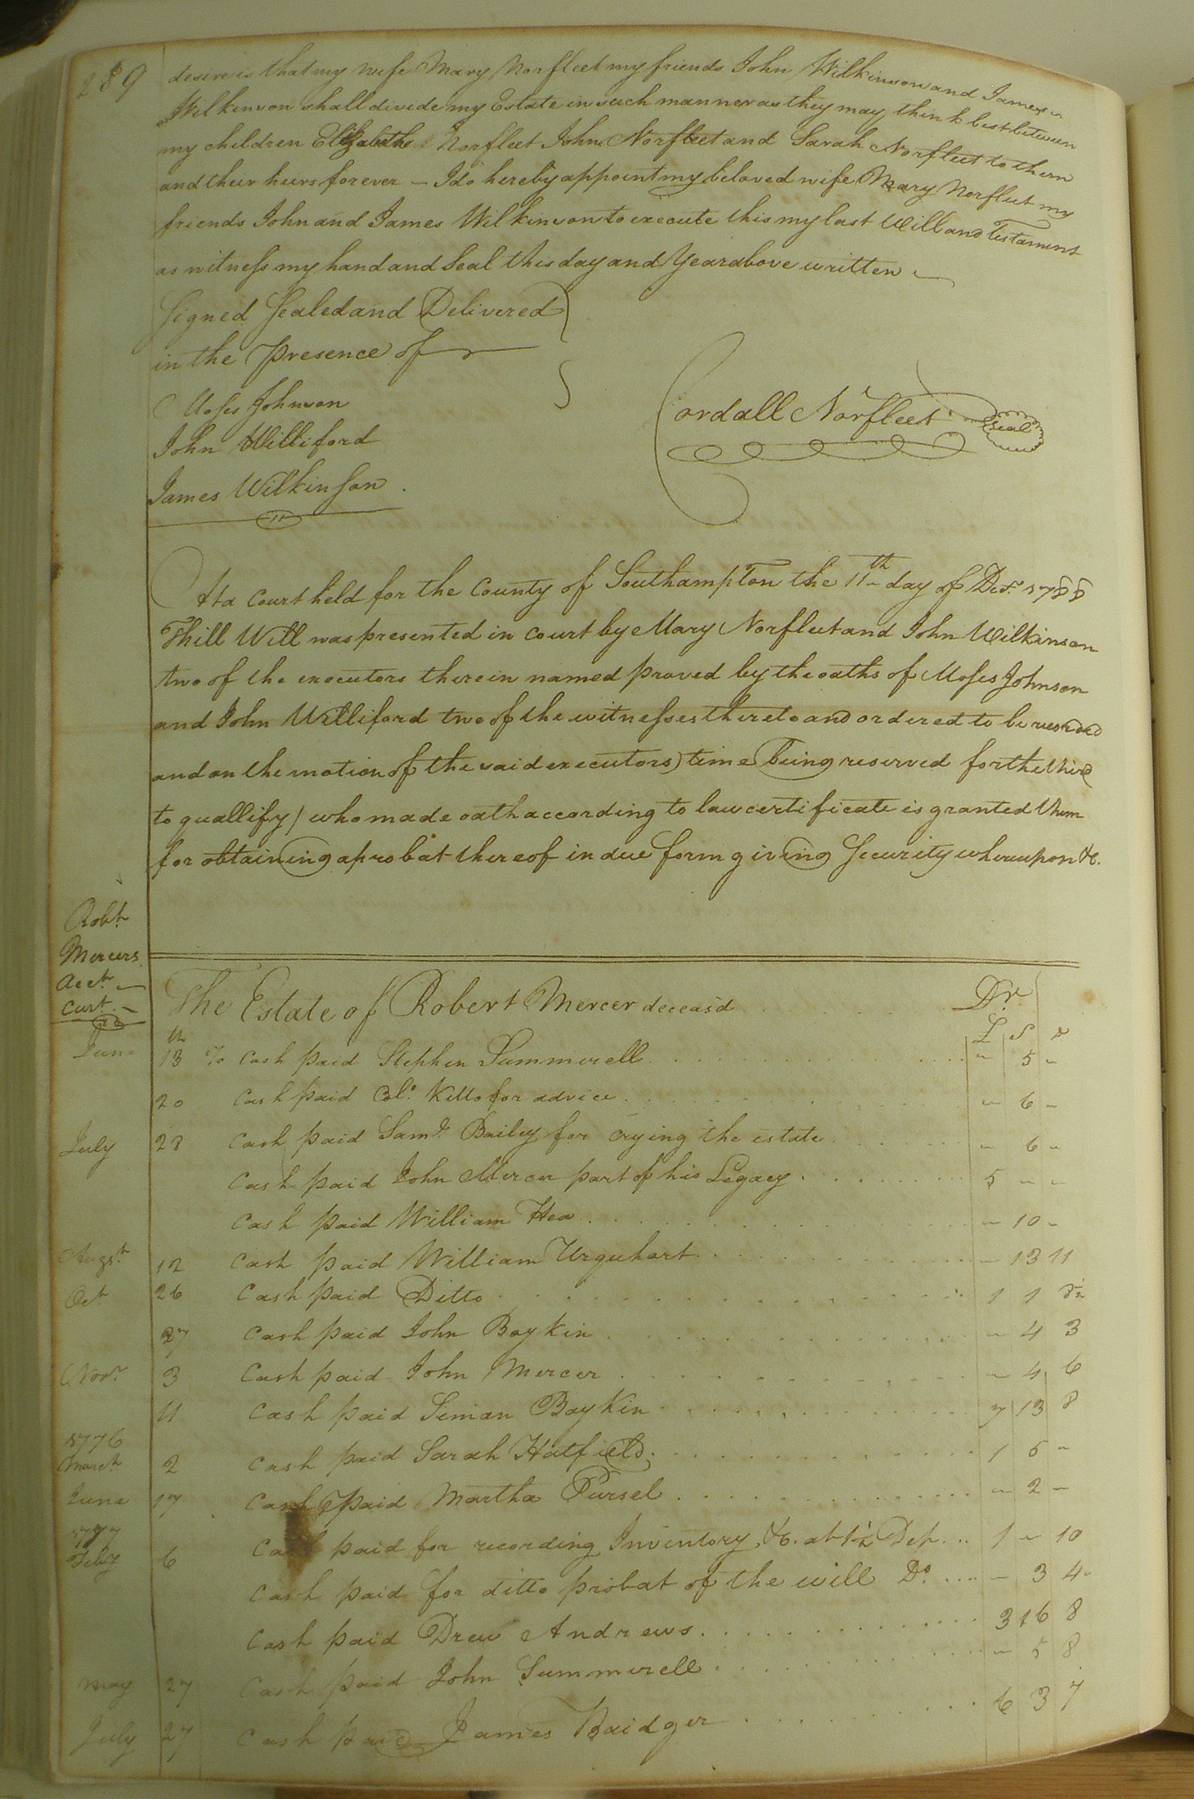 289
desire is that my wife Mary Norfleet my friends John Wilkinson and James
Wilkinson shall divide my Estate in such manner as they may think best between
my children Elizabeth Norfleet John Norfleet and Sarah Norfleet to them
and their heirs forever – I do hereby appoint my beloved wife Mary Norfleet my
friends John and James Wilkinson to execute this my last Will and Testament
as witness my hand and Seal this day and Year above written
Signed Sealed and Delivered
in the Presence of
Moses Johnson
John Williford
James Wilkinson
Cordall Norfleet Seal
At a Court held for the County of Southampton the 11th day of Decr. 1788
This Will was presented in Court by Mary Norfleet and John Wilkinson
two of the executors therein named proved by the oaths of Moses Johnson
and John Williford two of the witnesses thereto and ordered to be recorded
and on the motion of the said executors) time being reserved for the third
to quallify) who made oath according to law certificate is granted them
for obtaining a probat thereof in due form giving Security whereupon &c.
Robt.
Mercers
Acct.
Curt.
The Estate of Robert Mercer deceas'd Dr.
£ S d
June 13th To Cash paid Stephen Summerell – 5 –
20 Cash paid Col. Kello for advice – 6 –
July 28 Cash paid Saml. Bailey for crying the estate – 6 –
Cash paid John Mercer part of his Legacy 5 – –
Cash paid William Hea – 10 –
Augst. 12 Cash paid William Urquhart – 13 11
Oct 26 Cash paid Ditto 1 1
27 Cash paid John Boykin – 4 3
Novr. 3 Cash paid John Mercer – 4 6
11 Cash paid Simon Boykin 7 13 8
1776
March 2 Cash paid Sarah Hatfield 1 5 –
June 17 Cash paid Martha Pursel – 2 –
1777
Feby 6 Cash paid for recording Inventory &c. at 1½ Dep. 1 – 10
Cash paid for ditto probat of the will Do. – 3 4
Cash paid Drew Andrews 3 16 8
May 27 Cash paid John Summerell – 5 8
July 27 Cash paid James Baidger 6 3 7